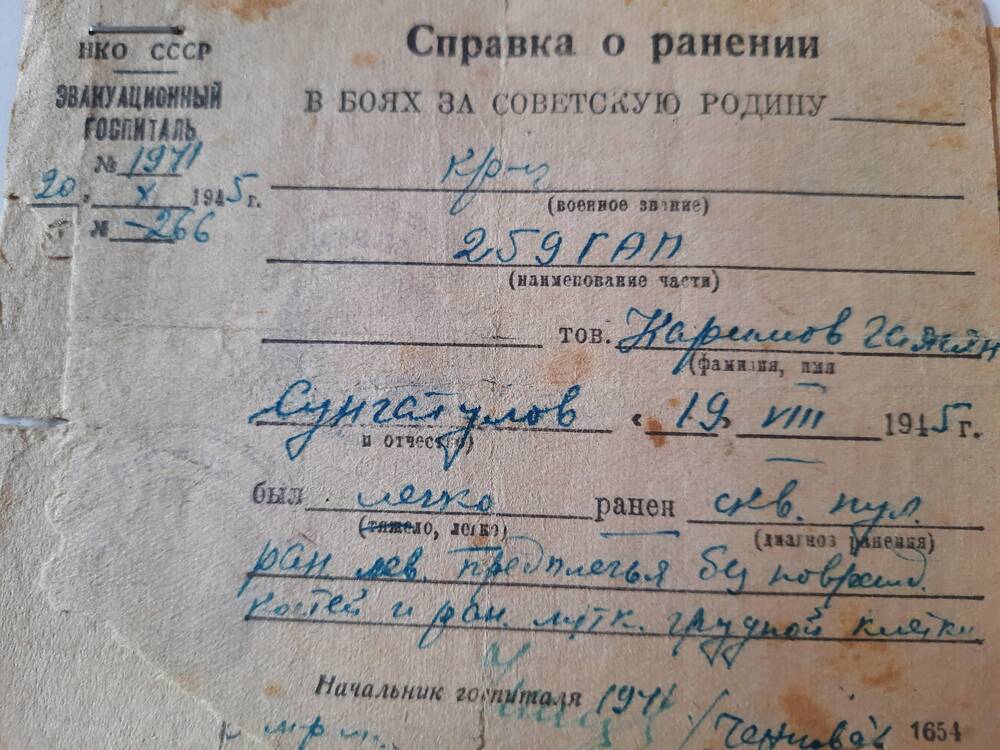 НКО СССР
ЭВАКУАЦИОННЫЙ
ГОСПИТАЛЬ
№ 1971
20 " X 1945 г.
№ -266
Справка о ранении
В БОЯХ ЗА СОВЕТСКУЮ РОДИНУ
кр-ц
(военное звание)
259 ГАП
(наименование части)
тов. Каримов
(фамилия, имя
Сунгатулов « 19 » VIII 1945 г.
и отчество)
был легко ранен скв. пул.
(тяжело, легко) (диагноз ранения)
ран. лев. предплечья без поврежд.
костей и ран. мягк. грудной клетки
Начальник госпиталя 1971
1654